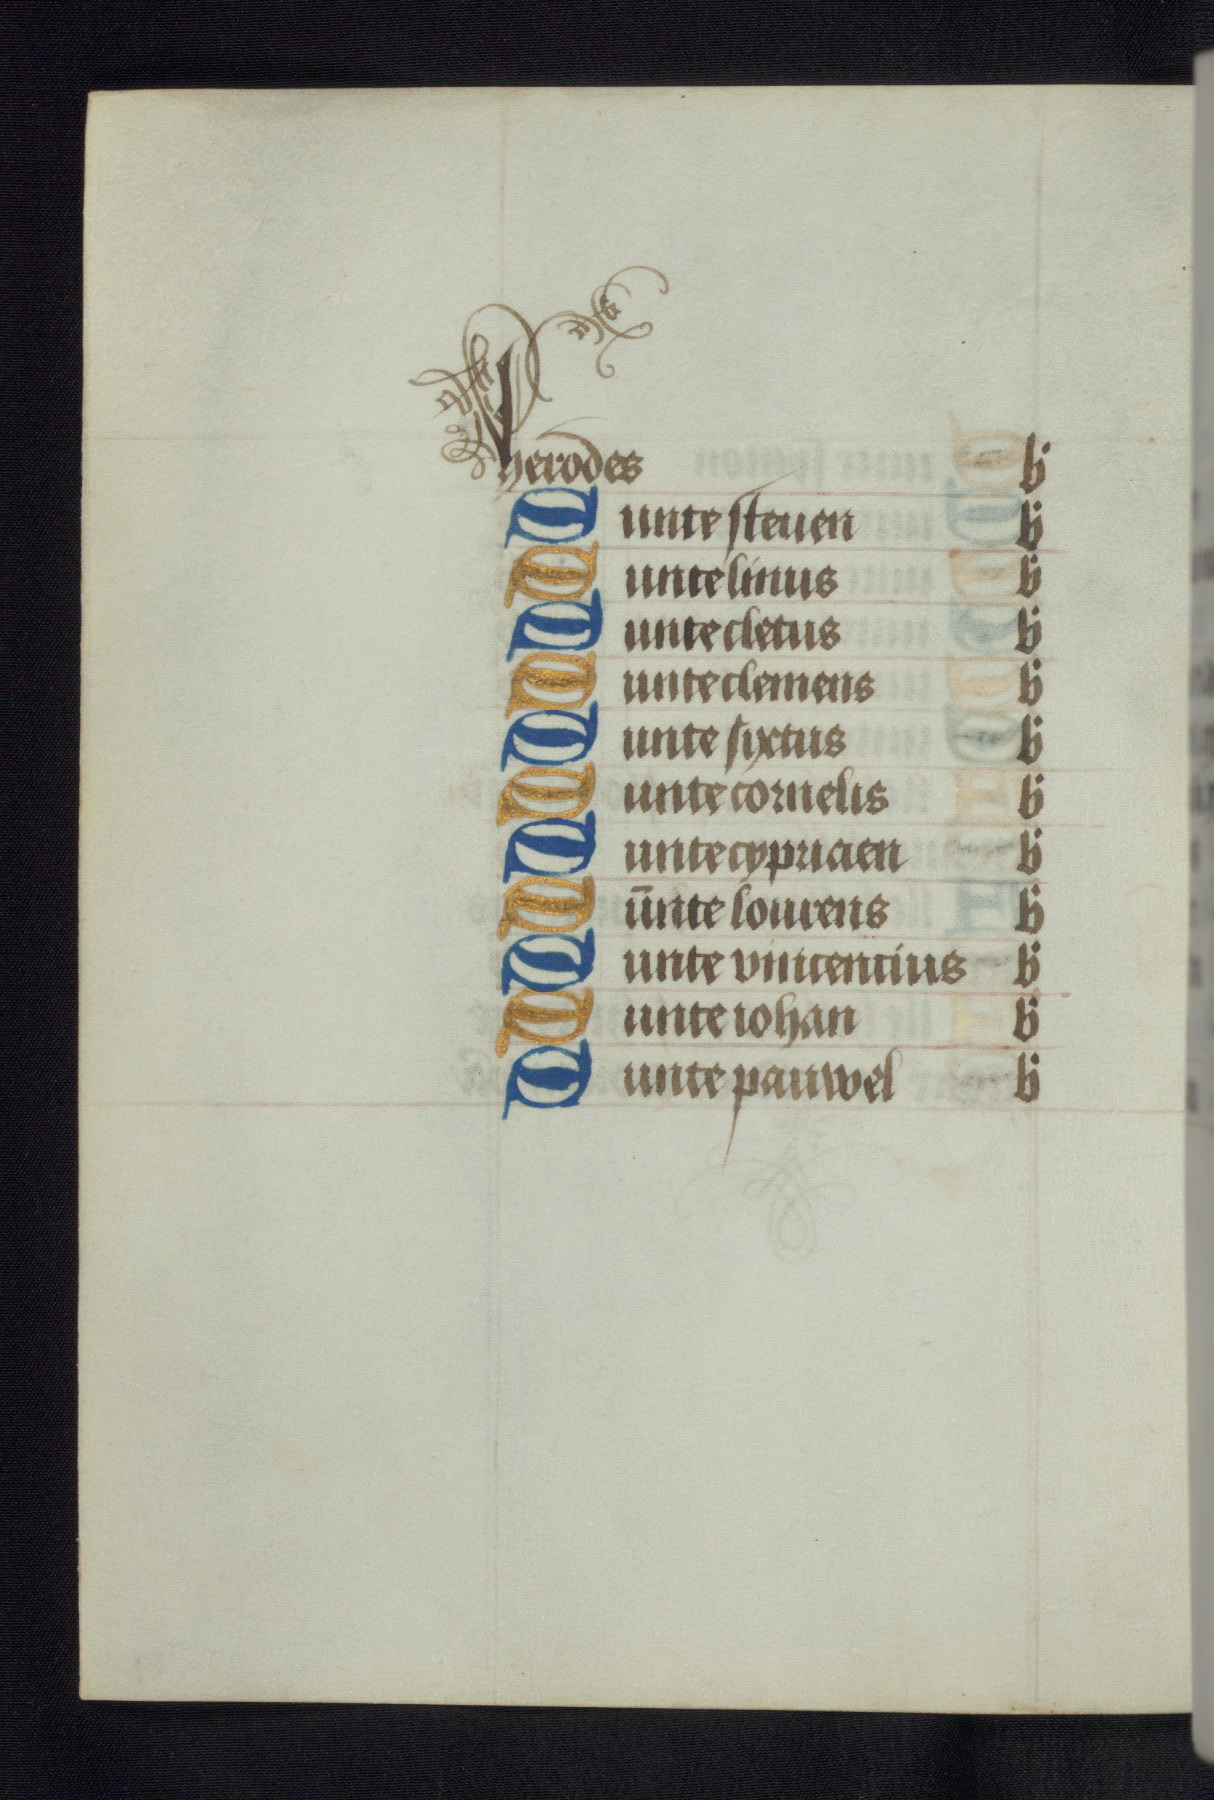 herodes b
Sunte steuen b
Sunte linus b
Sunte cletus b
Sunte clemens b
Sunte sixtus b
Sunte cornelis b
Sunte cypriaen b
Sunte lourens b
Sunte vincencius b
Sunte iohan b
Sunte pauwel b